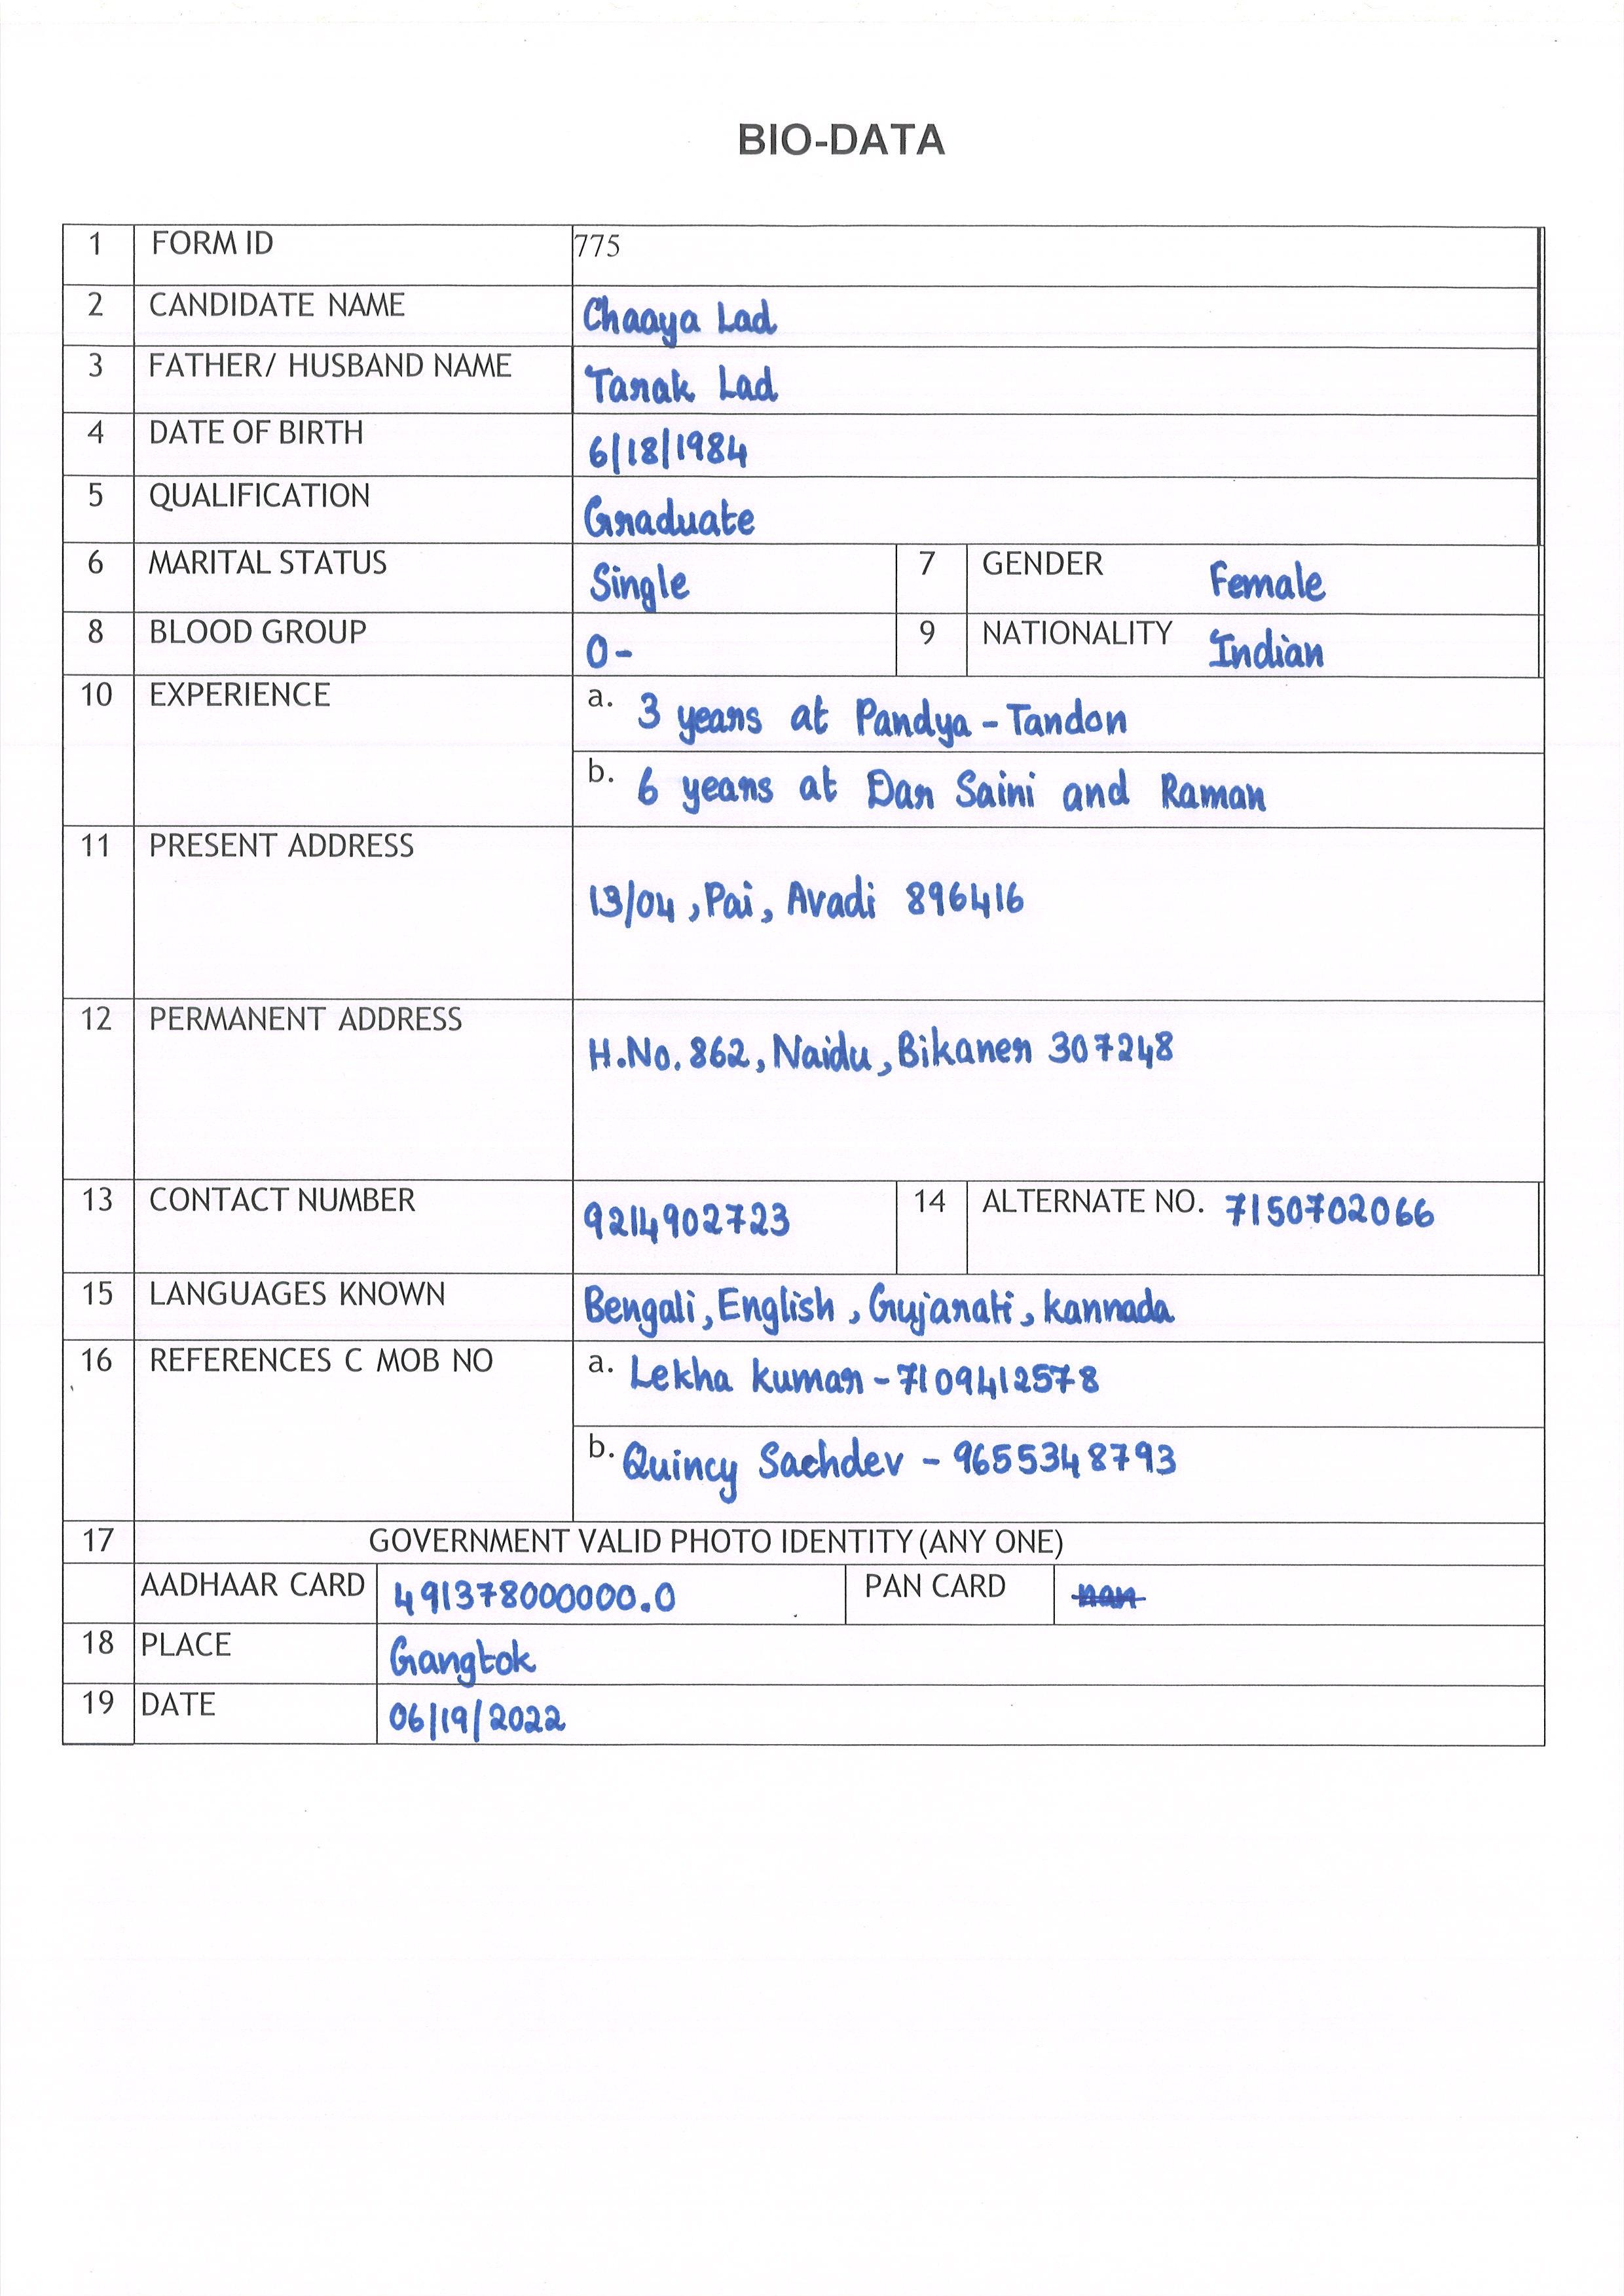 BIO-DATA
1 FORM ID 775
2 CANDIDATE NAME Chaaya Lad
3 FATHER/ HUSBAND NAME Tarak Lad
4 DATE OF BIRTH 6/18/1984
5 QUALIFICATION Graduate
6 MARITAL STATUS Single 7 GENDER Female
8 BLOOD GROUP O- 9 NATIONALITY Indian
10 EXPERIENCE a. 3 years at Pandya-Tandon
b. 6 years at Dar Saini and Raman
11 PRESENT ADDRESS
13/04, Pai, Avadi 896416
12 PERMANENT ADDRESS
H.No. 862, Naidu, Bikaner 307248
13 CONTACT NUMBER 9214902723 14 ALTERNATE NO. 7150702066
15 LANGUAGES KNOWN Bengali, English, Gujarati, kannada
16 REFERENCES C MOB NO a. Lekha kumar - 7109412578
b. Quincy Sachdev - 9655348793
17 GOVERNMENT VALID PHOTO IDENTITY (ANY ONE)
AADHAAR CARD 491378000000.0 PAN CARD nan
18 PLACE Gangtok
19 DATE 06/19/2022